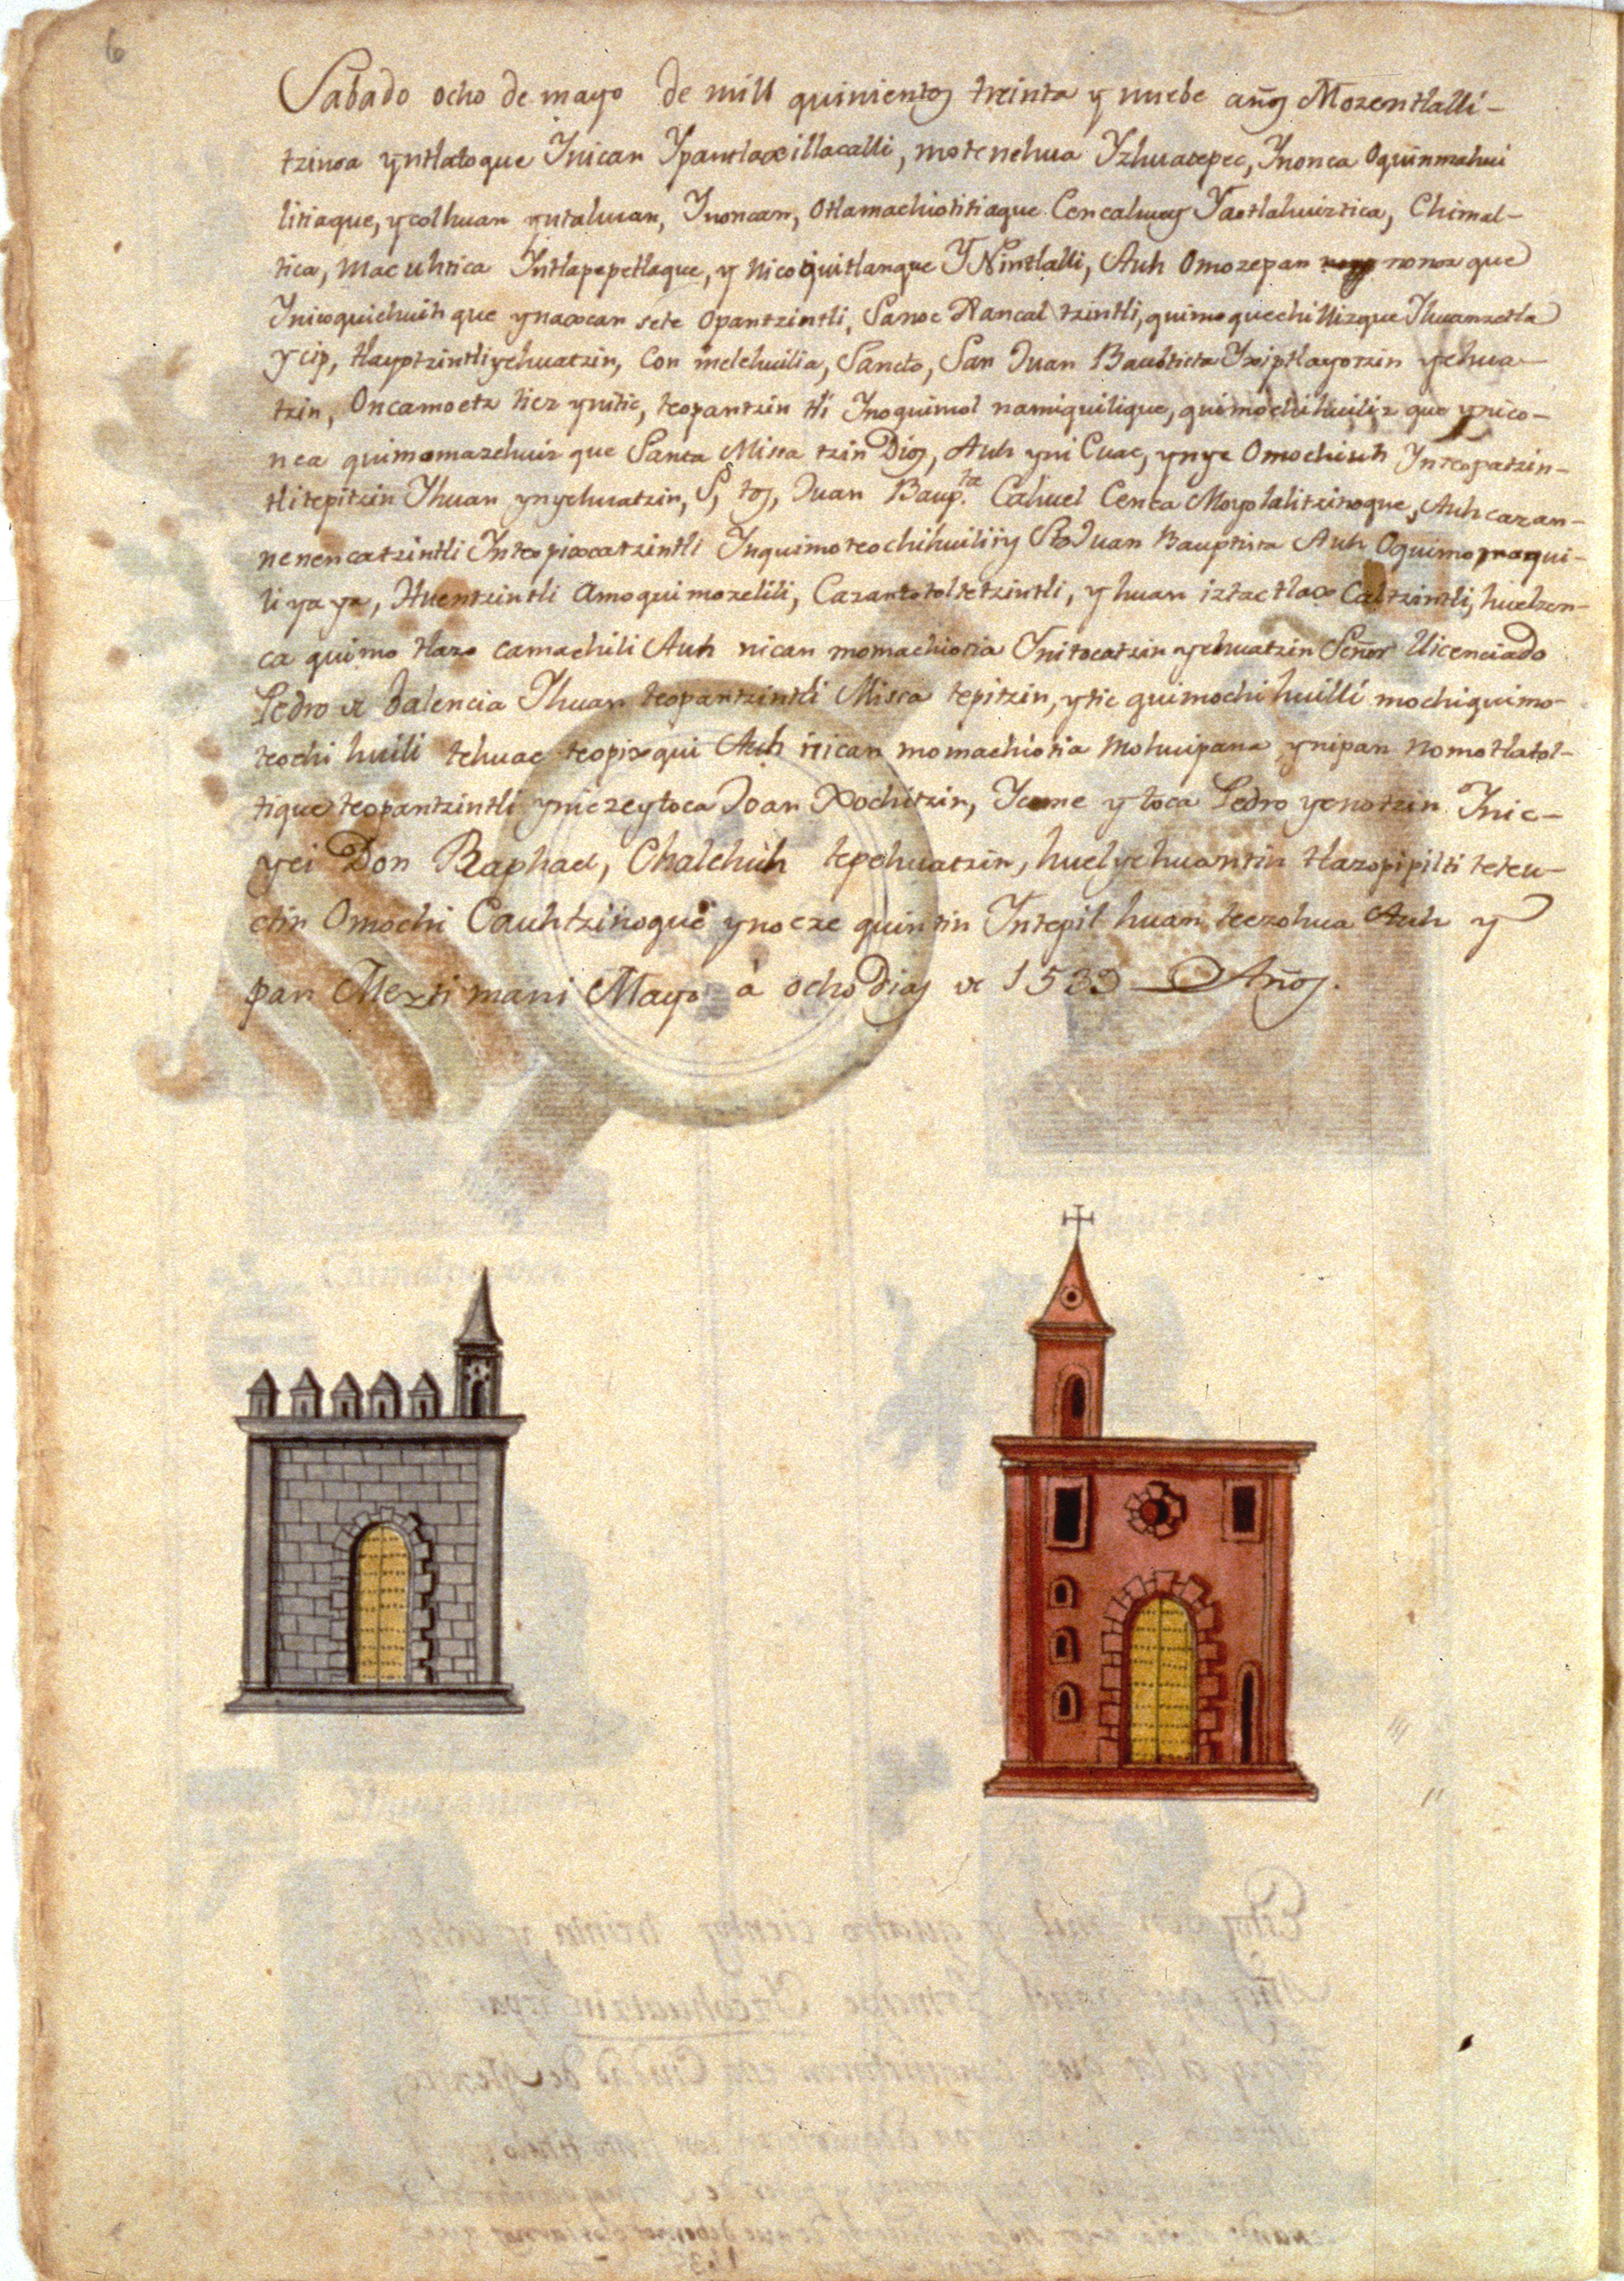 6
Sabado ocho de mayo de mill quinientos treinta y nuebe años Mozentlalli-
tzinoa yntlatoque Ynican Ypantlaxillacalli, motenehua Yzhuatepec, Ynonca Oquinmahui
litiaque, ycolhuan yntalhuan, Ynoncan, Otlamachiotitiaque Cencalhuey Yaotlahuiztica, Chimal-
tica, Macuhtica Yntlapepetlaque, y Nicoquitlanque YNintlalli, Auh Omozepan nonoz que
Ynicoquichuih que ynaxcan sete Opantzintli, Sanoc Xancal tzintli, quimoquechillizque Yhuanzetla
ycip, tlayotzintliyehuatzin, Con melehuilia, Sancto, San Juan Bautista Yxiptlayotzin yehua-
tzin, Oncamoetz tiez ynitic, teopantzin tli Ynoquimol namiquilique, quimochihuiliz que ynico-
nca quimomazehuiz que Santa Missa tzin Dios, Auh yni Cuac, ynye Omochiuh Ynteopatzin-
tlitepitzin Yhuan ynyehuatzin, S, tos, Juan Baup.ta Cahuel Cenca Moyolalitzinoque, Auh cazan-
nenencatzintli Inteopixcatzintli Ynquimoteochihuiliiy Sto Juan Bauptista Auh Oquimomaqui-
liyaya, Huentzintli Amoquimozelili, Cazantotoltetzintli, yhuan iztactlax Caltzintli, huelzen-
ca quimo tlazo camachili Auh nican momachiotia Ynitocatzin yehuatzin Señor Licenciado
Pedro de Balencia Yhuan teopantzintli Missa tepitzin, ytic quimochi huilli mochiquimo-
teochi huili tehuac teopixqui Auh nican momachiotia Mohuipana ynipan nomotlatol-
tique teopantzintli yniczeytoca Joan Xochitzin, Ycome ytoca Pedro yenotzin Ynic-
yei Don Raphael, Chalchiuh tepehuatzin, huelyehuantin tlazopipilti teteu-
ctin Omochi Cauhtzinoque ynoc ze quintin Yntepil huan teezohua Auh y
pan Meztimani Mayo à ocho dias de 1539 Años.